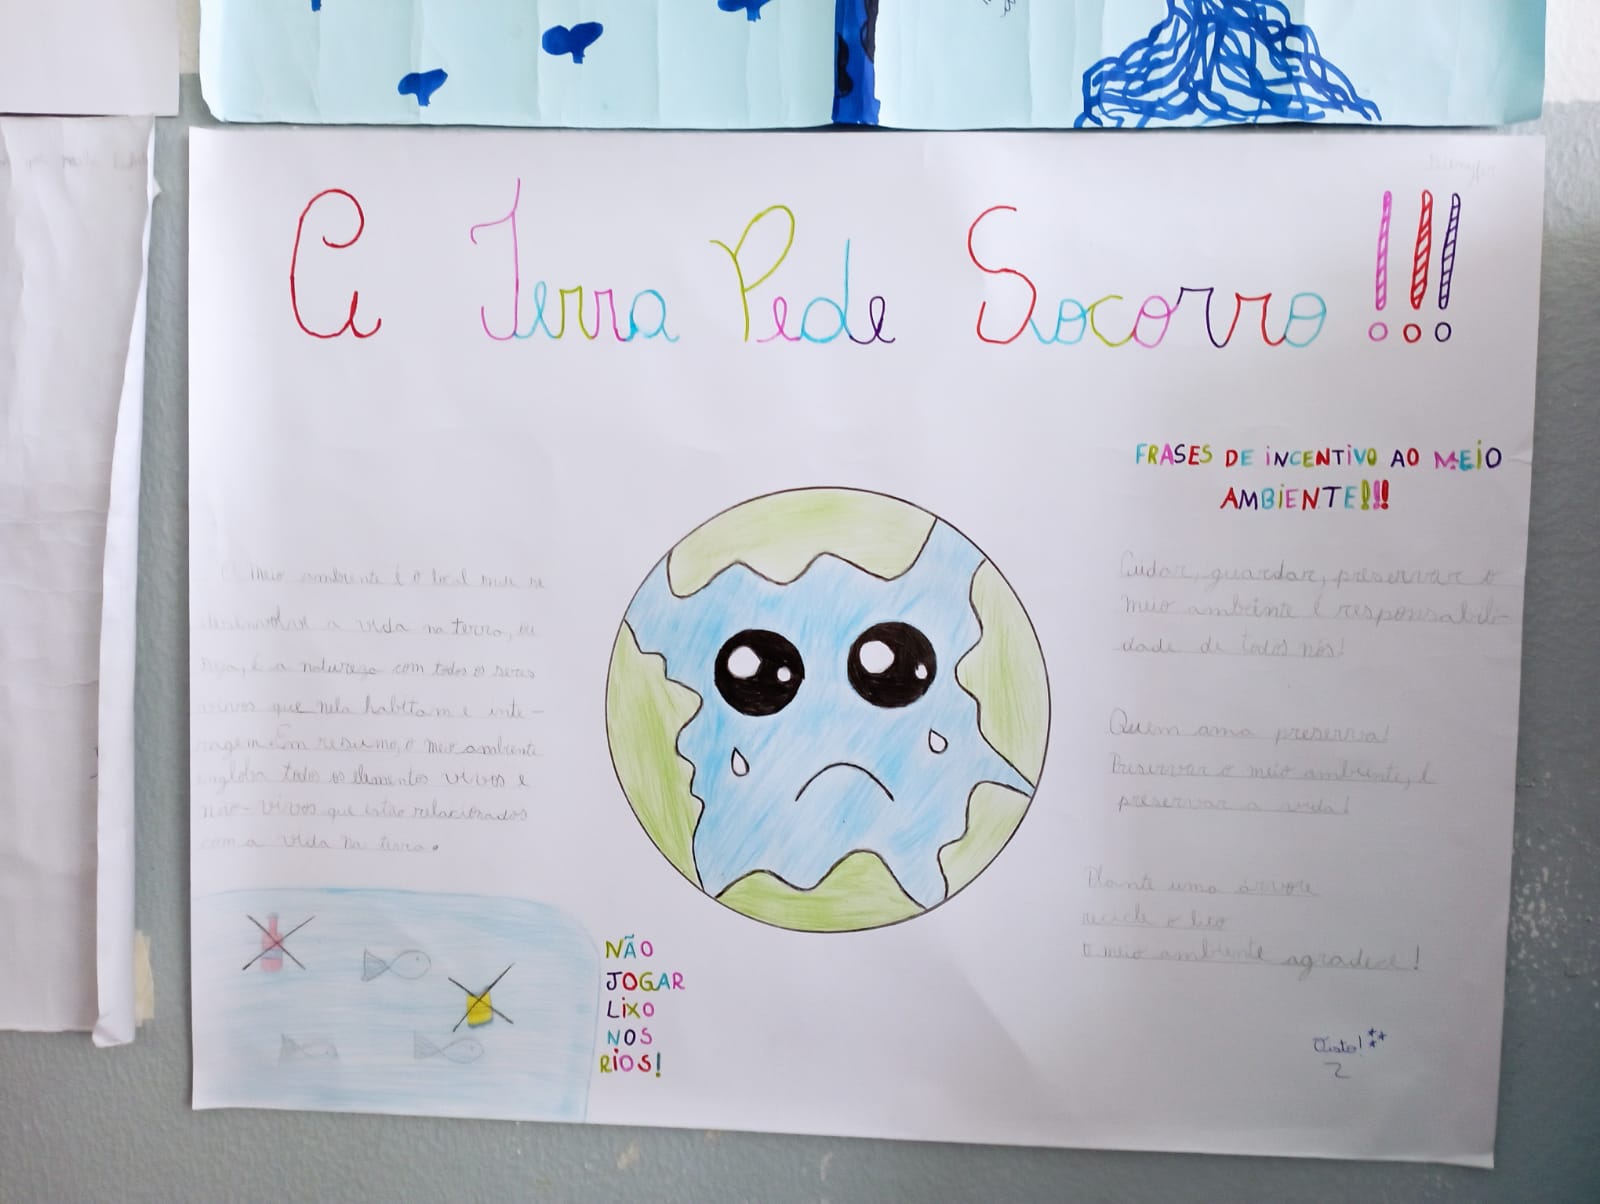 A Terra Pede Socorro!!!
O meio ambiente é o local onde se
desenvolve a vida na terra, ou
seja, é a natureza com todos os seres
vivos que nela habitam e inte-
ragem. Em resumo, o meio ambiente
engloba todos os elementos vivos e
não-vivos que estão relacionados
com a vida na terra.
NÃO
JOGAR
LIXO
NOS
RIOS!
FRASES DE INCENTIVO AO MEIO
AMBIENTE!!!
Cuidar, guardar, preservar o
meio ambiente é responsabili-
dade de todos nós!
Quem ama preserva!
Preservar o meio ambiente, é
preservar a vida!
Plante uma árvore
recicle o lixo
O meio ambiente agradece!
Visto!